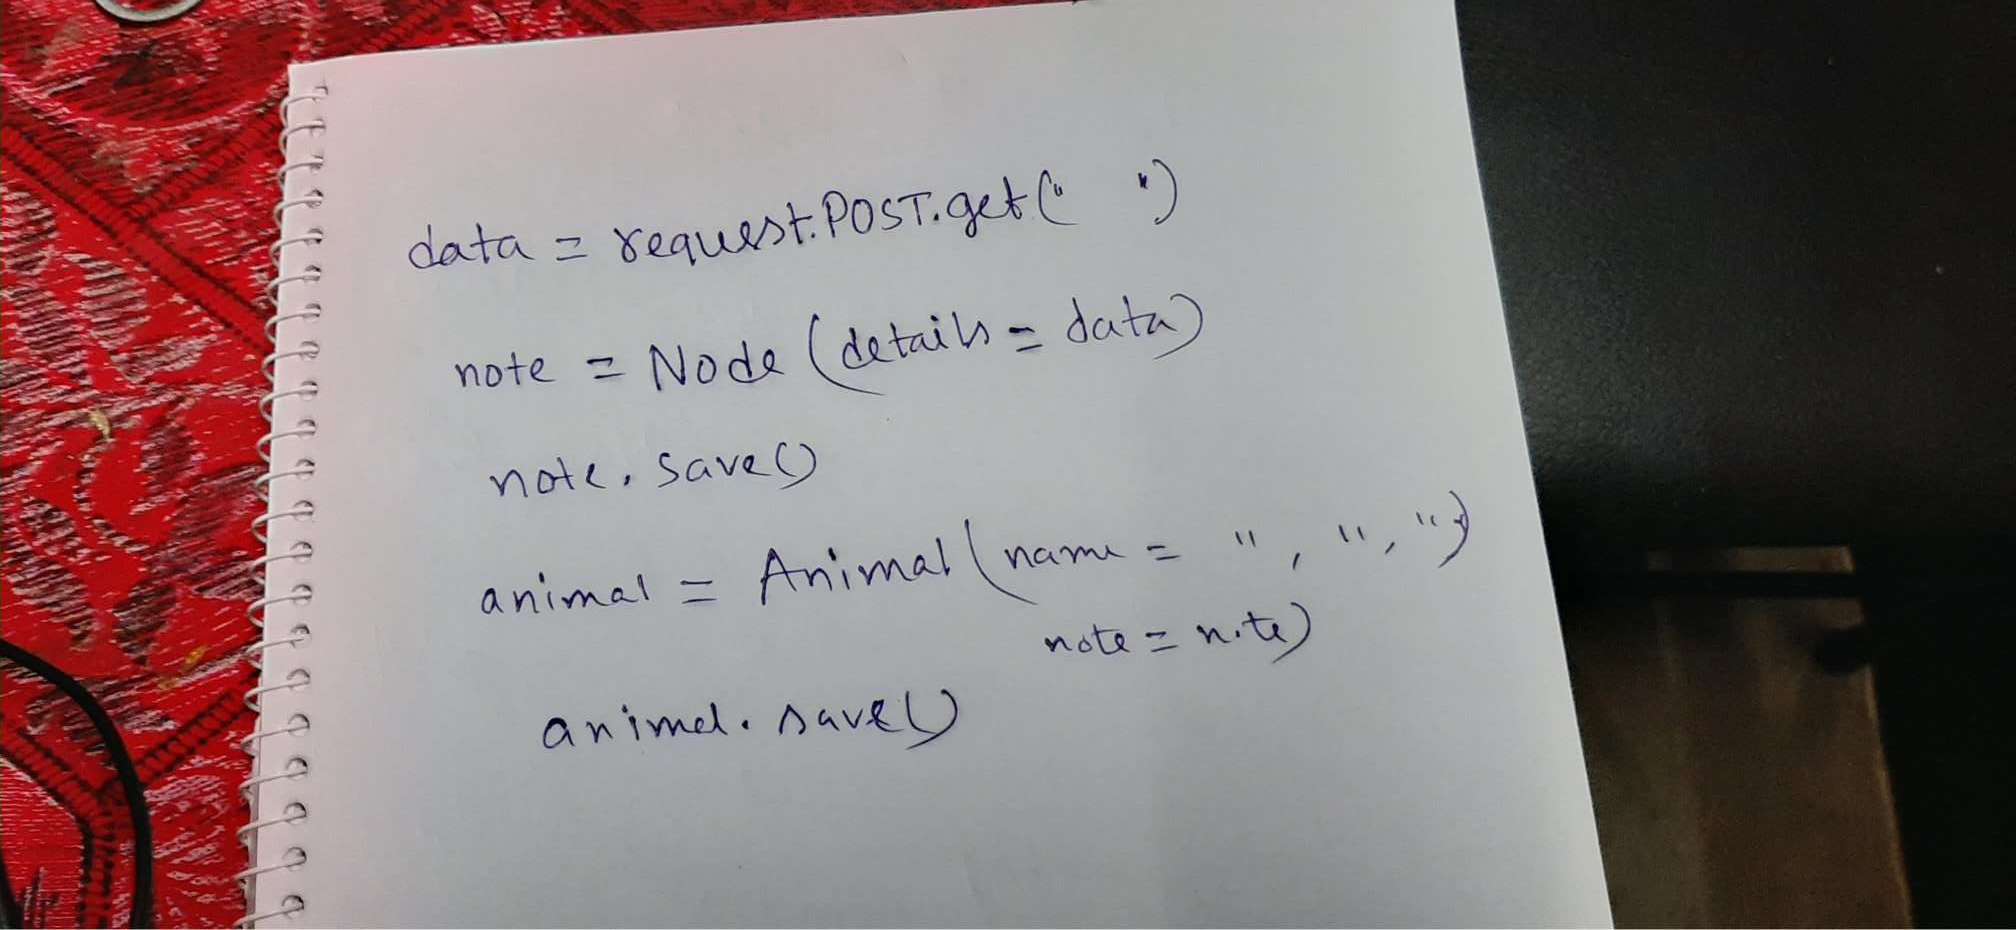 data = request.POST.get(" ")
note = Node (details = data)
note. save()
animal = Animal (name = ", ", ")
note = note)
animal. save()